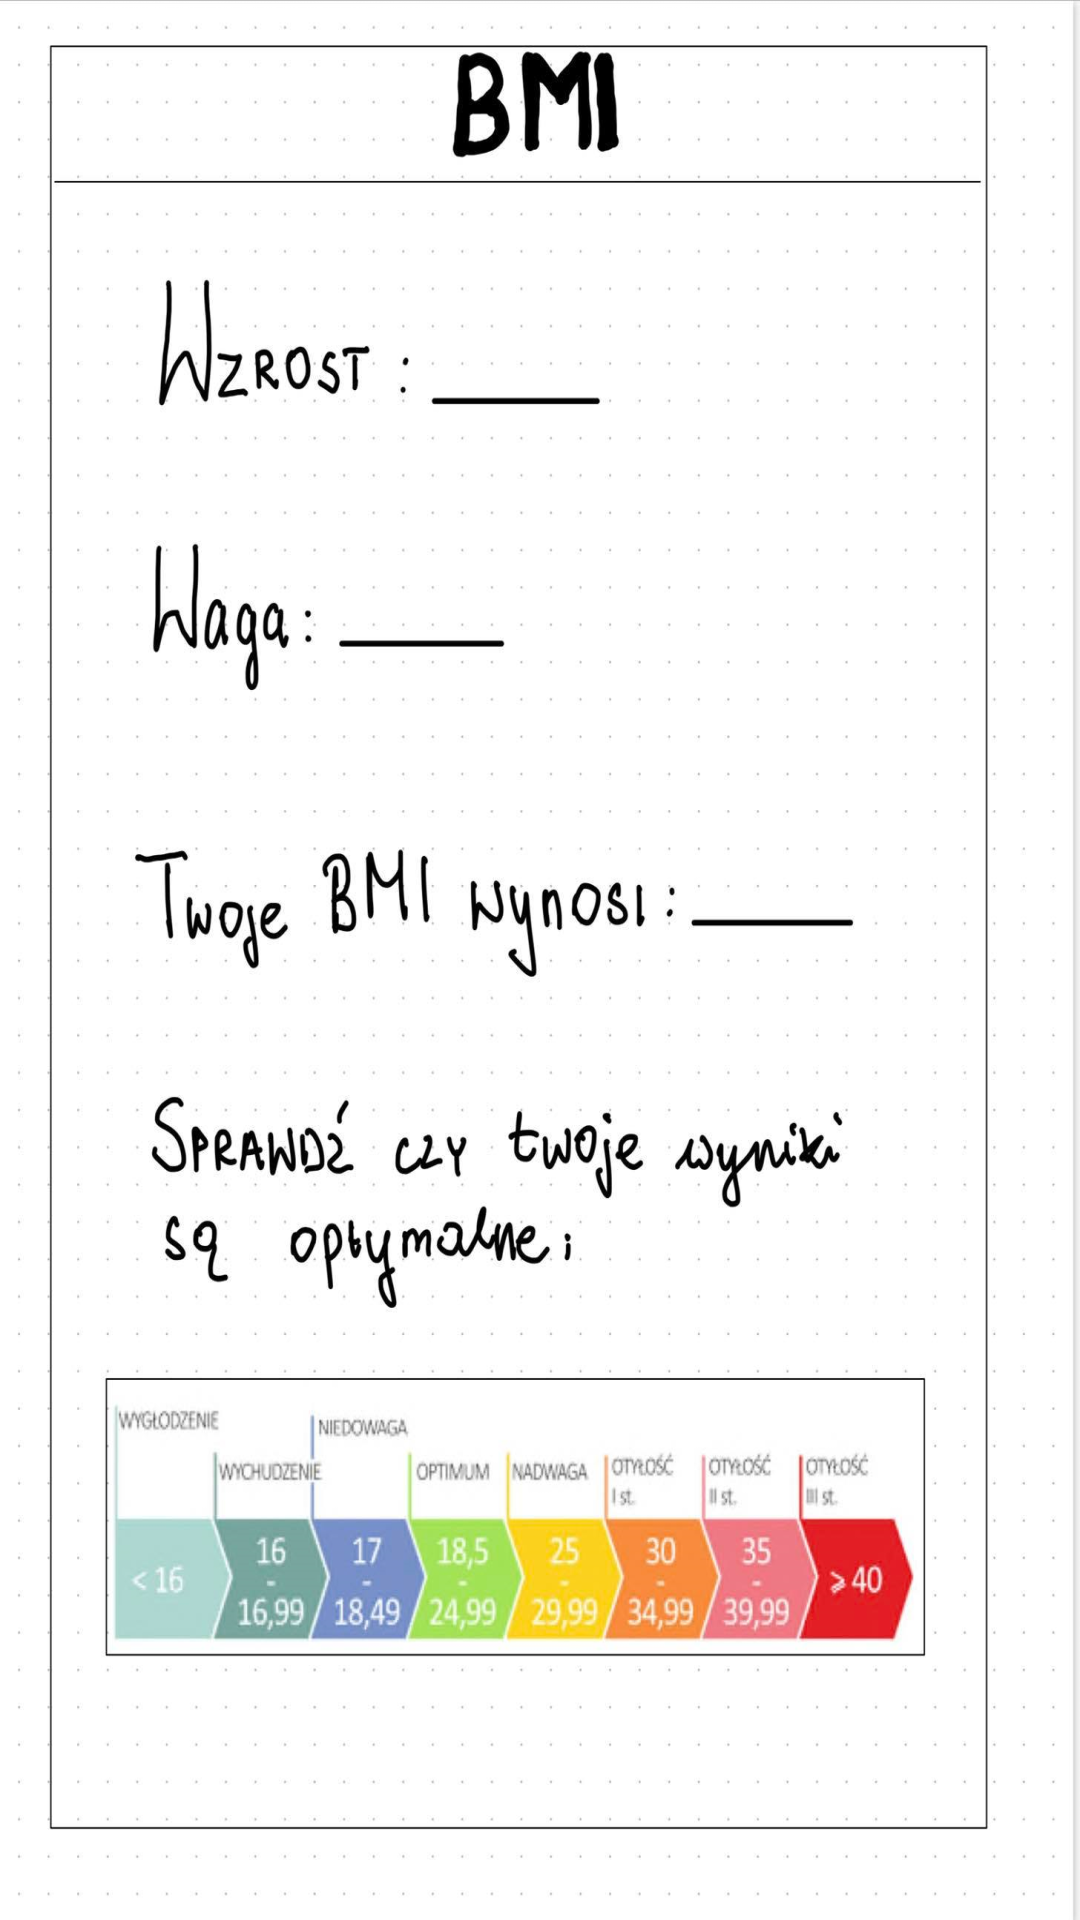 BMI
WZROST : _____
Waga: _____
Twoje BMI wynosi: _____
SPRAWDŹ czy twoje wyniki
są optymalne:
WYGŁODZENIE
NIEDOWAGA
WYCHUDZENIE OPTIMUM NADWAGA OTYŁOŚĆ I st. OTYŁOŚĆ II st. OTYŁOŚĆ III st.
< 16
16 - 16,99
17 - 18,49
18,5 - 24,99
25 - 29,99
30 - 34,99
35 - 39,99
⩾ 40